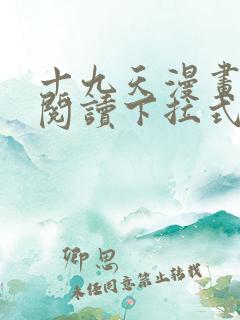 十九天漫畫
閱讀下拉式
卿思
未经同意禁止转载